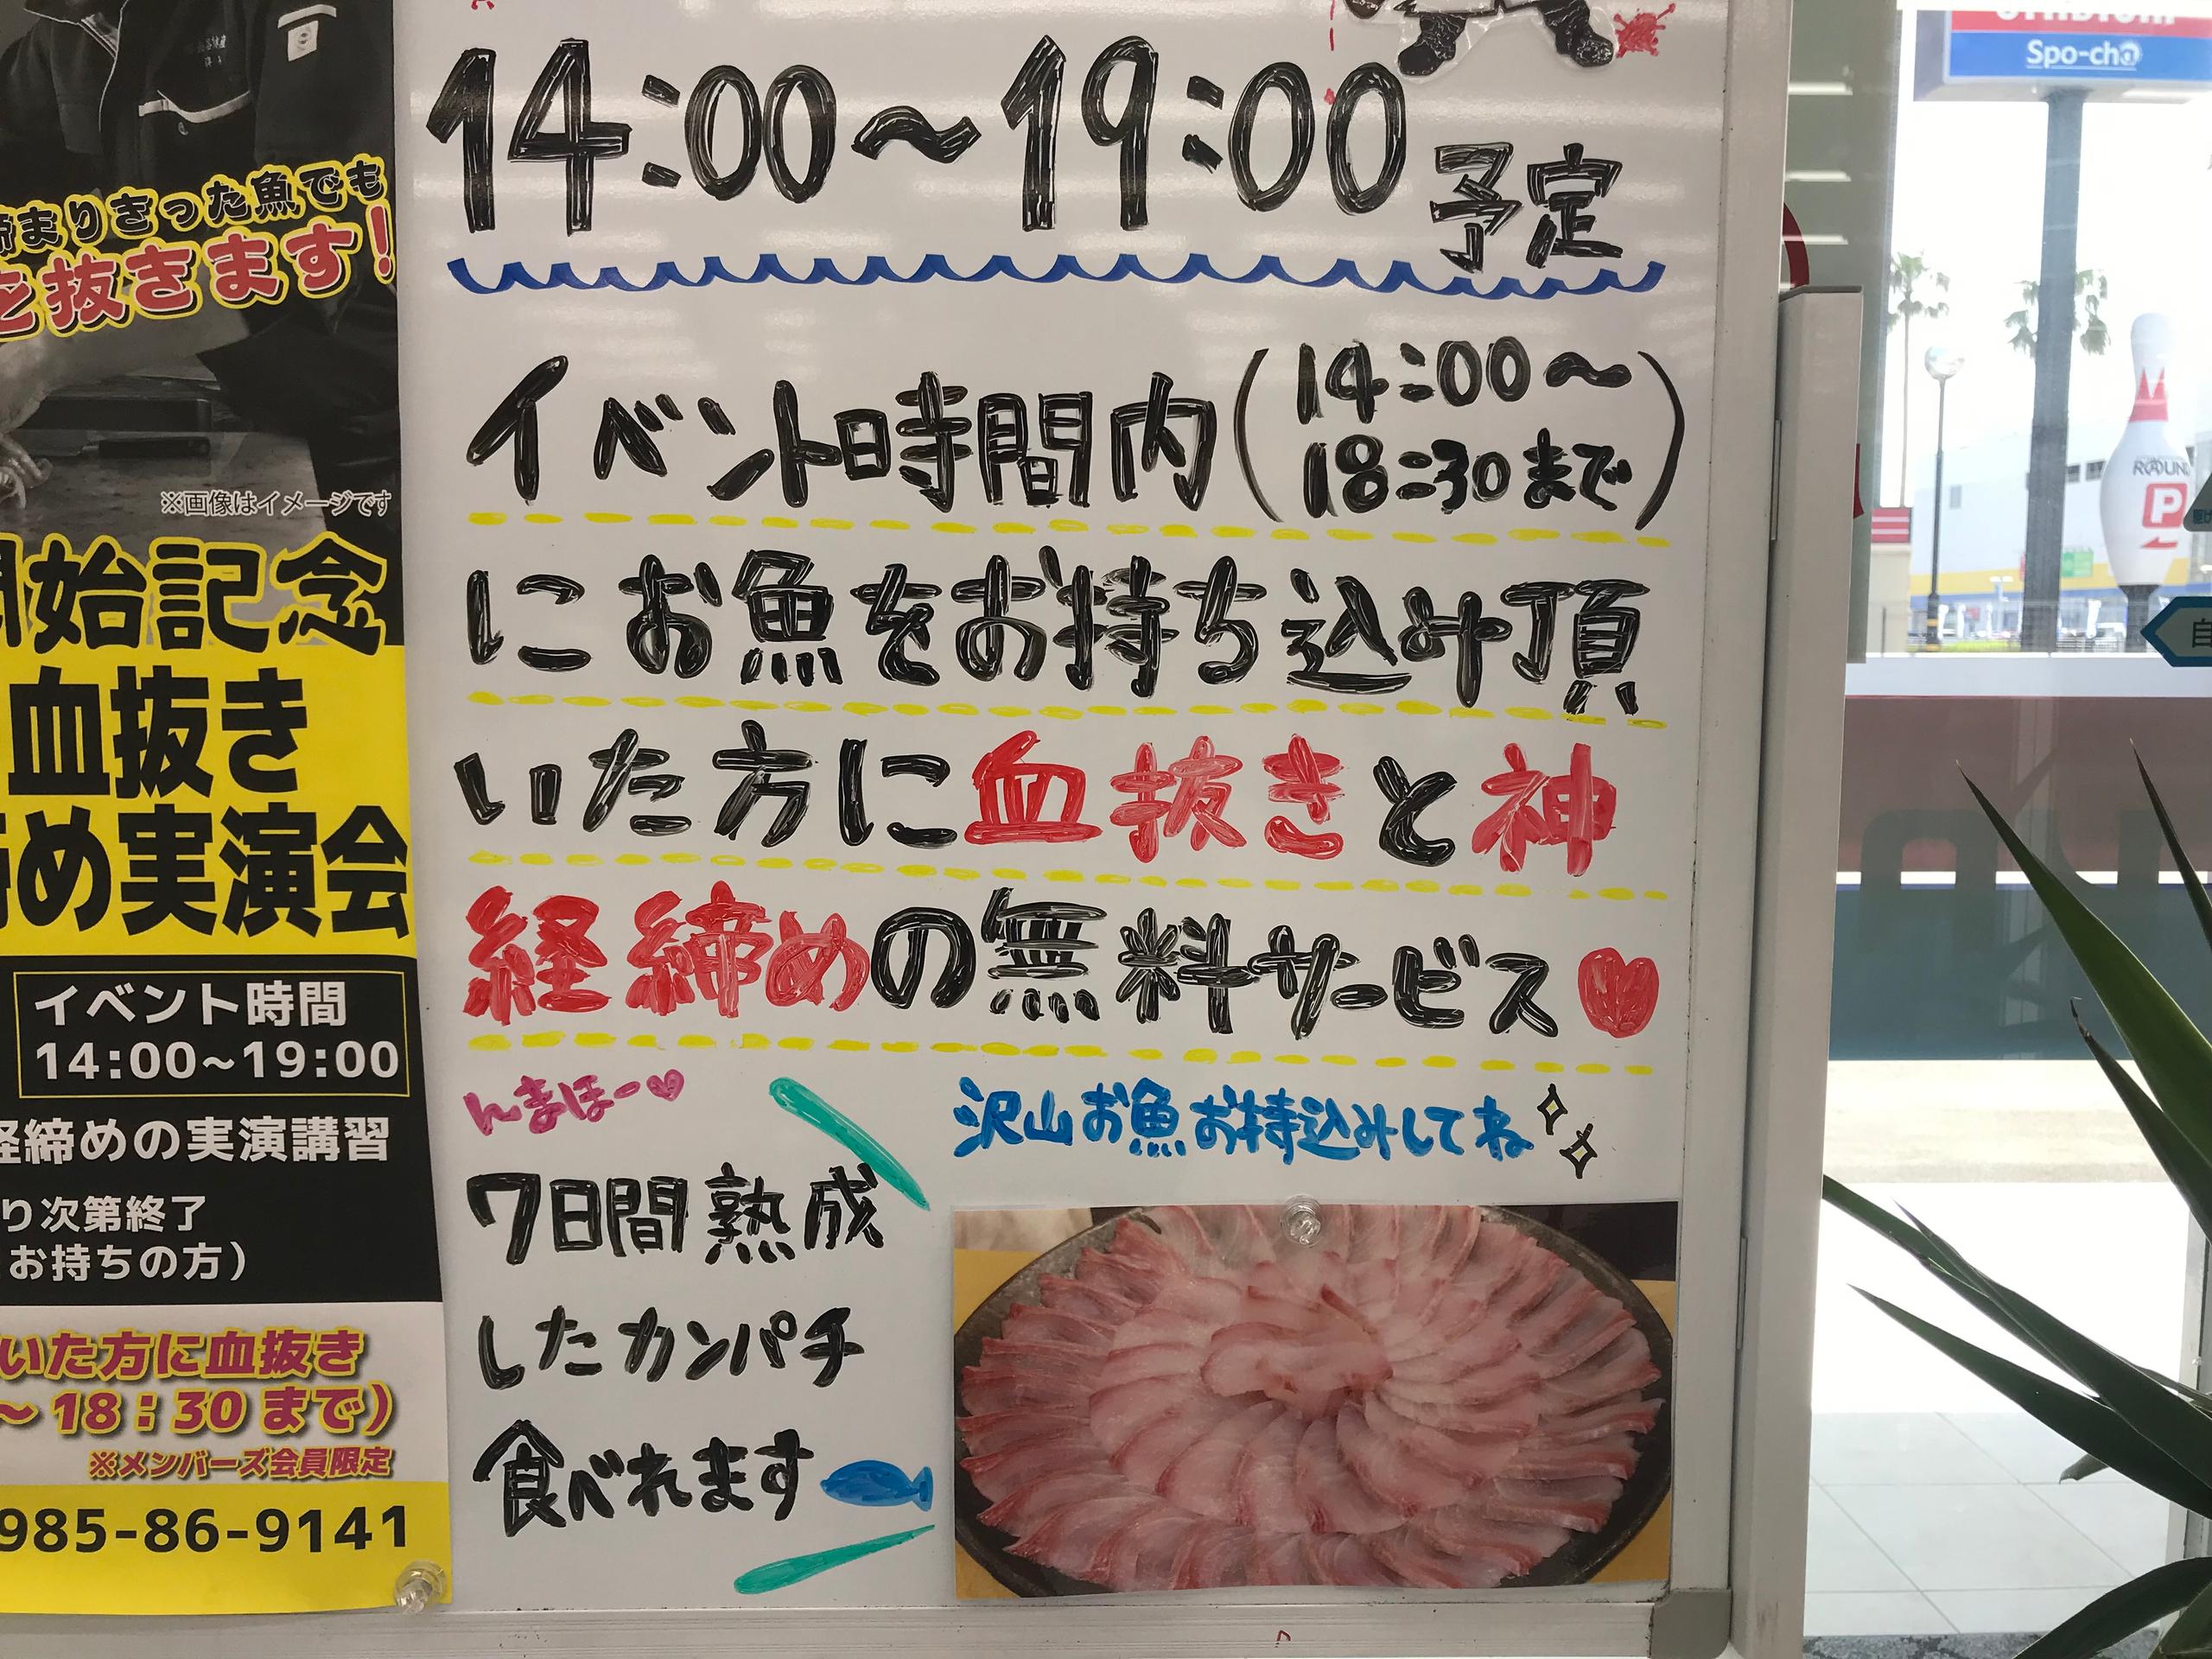 14:00～19:00予定
イベント時間内(14:00～
18:30まで)
にお魚をお持ち込み頂
いた方に血抜きと神
経締めの無料サービス
んまほー
沢山お魚お持込みしてね
7日間熟成
したカンパチ
食べれます
締まりきった魚でも
を抜きます!
※画像はイメージです
開始記念
血抜き
締め実演会
イベント時間
14:00～19:00
経締めの実演講習
り次第終了
お持ちの方)
いた方に血抜き
～18:30まで)
※メンバーズ会員限定
985-86-9141
Spo-cha
ROUND
P